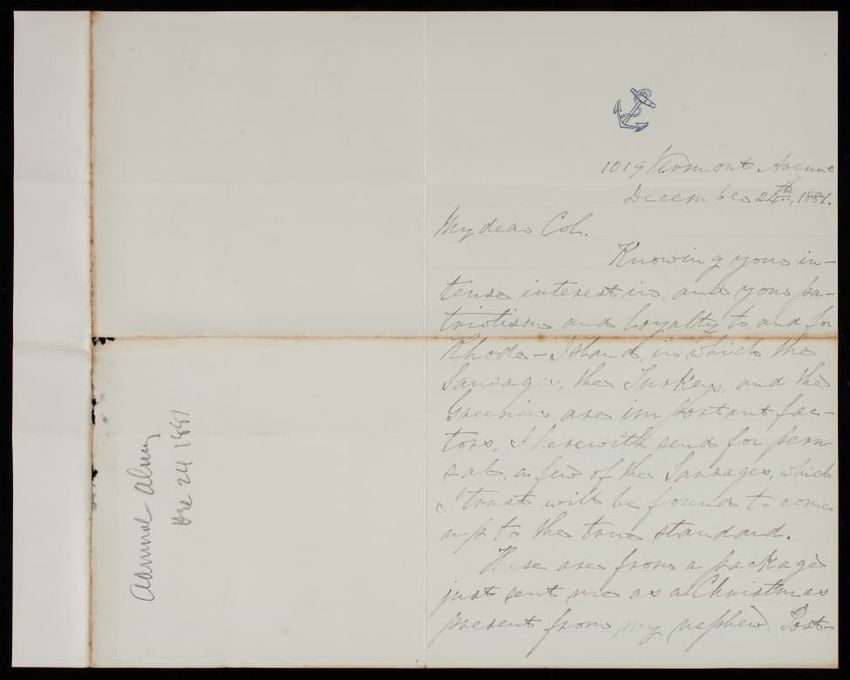 1019 Vermont Avenue
December 24th, 1881.
My dear Col.
Knowing your in-
tense interest in, and your pa-
triotism and loyalty to and for
Rhode-Island, in which the
Sausages, the Turkey, and the
Greening are important fac-
tors, I herewith send for peru-
sal, a few of the Sausages, which
I trust will be found to come
up to the true standard.
These are from a package
just sent me as a Christmas
present from my nephew. Post-
Admiral Almy
Dec 24 1881